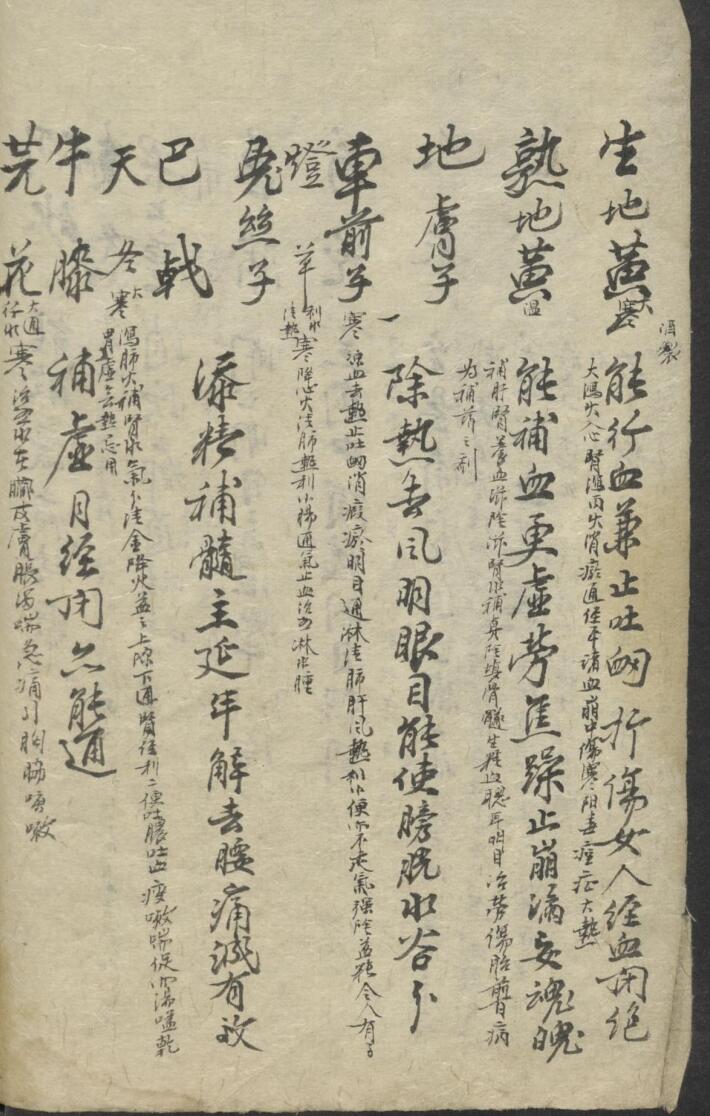 生地黃 大寒 酒製 能行血兼止吐衄折傷女人經血閉絶
大瀉火入心腎瀉丙火消瘀通經平諸血崩中傷寒陽毒痘症大熱
熟地黃 温 能補血更虛勞焦躁止崩漏安魂魄
補肝腎養血滋陰滋腎水補真陰填骨髓生精血聰耳明目治勞傷胎前百病
為補藥之剤
地膚子 除熱去風明眼目能使膀胱水谷分
車前子 寒 涼血去熱止吐衄消瘕瘀明目通淋清肺肝風熱利小便而不走氣强陰益精令人有子
燈草 利水清熱 寒降心火清肺熱利小腸通氣止血治五淋水腫
兔絲子 添精補髓主延年解去腰痛誠有效
巴戟
天冬 大寒 瀉肺火補腎水氣分清金降火益之上源下通腎經利二便吐膿吐血痰嗽喘促而湯嗌乾
胃虛無熱忌用
牛膝 補虛月經閉亦能通
芫花 大通行水 寒 治水在臟皮膚脹滿喘急痛引胸脇咳嗽